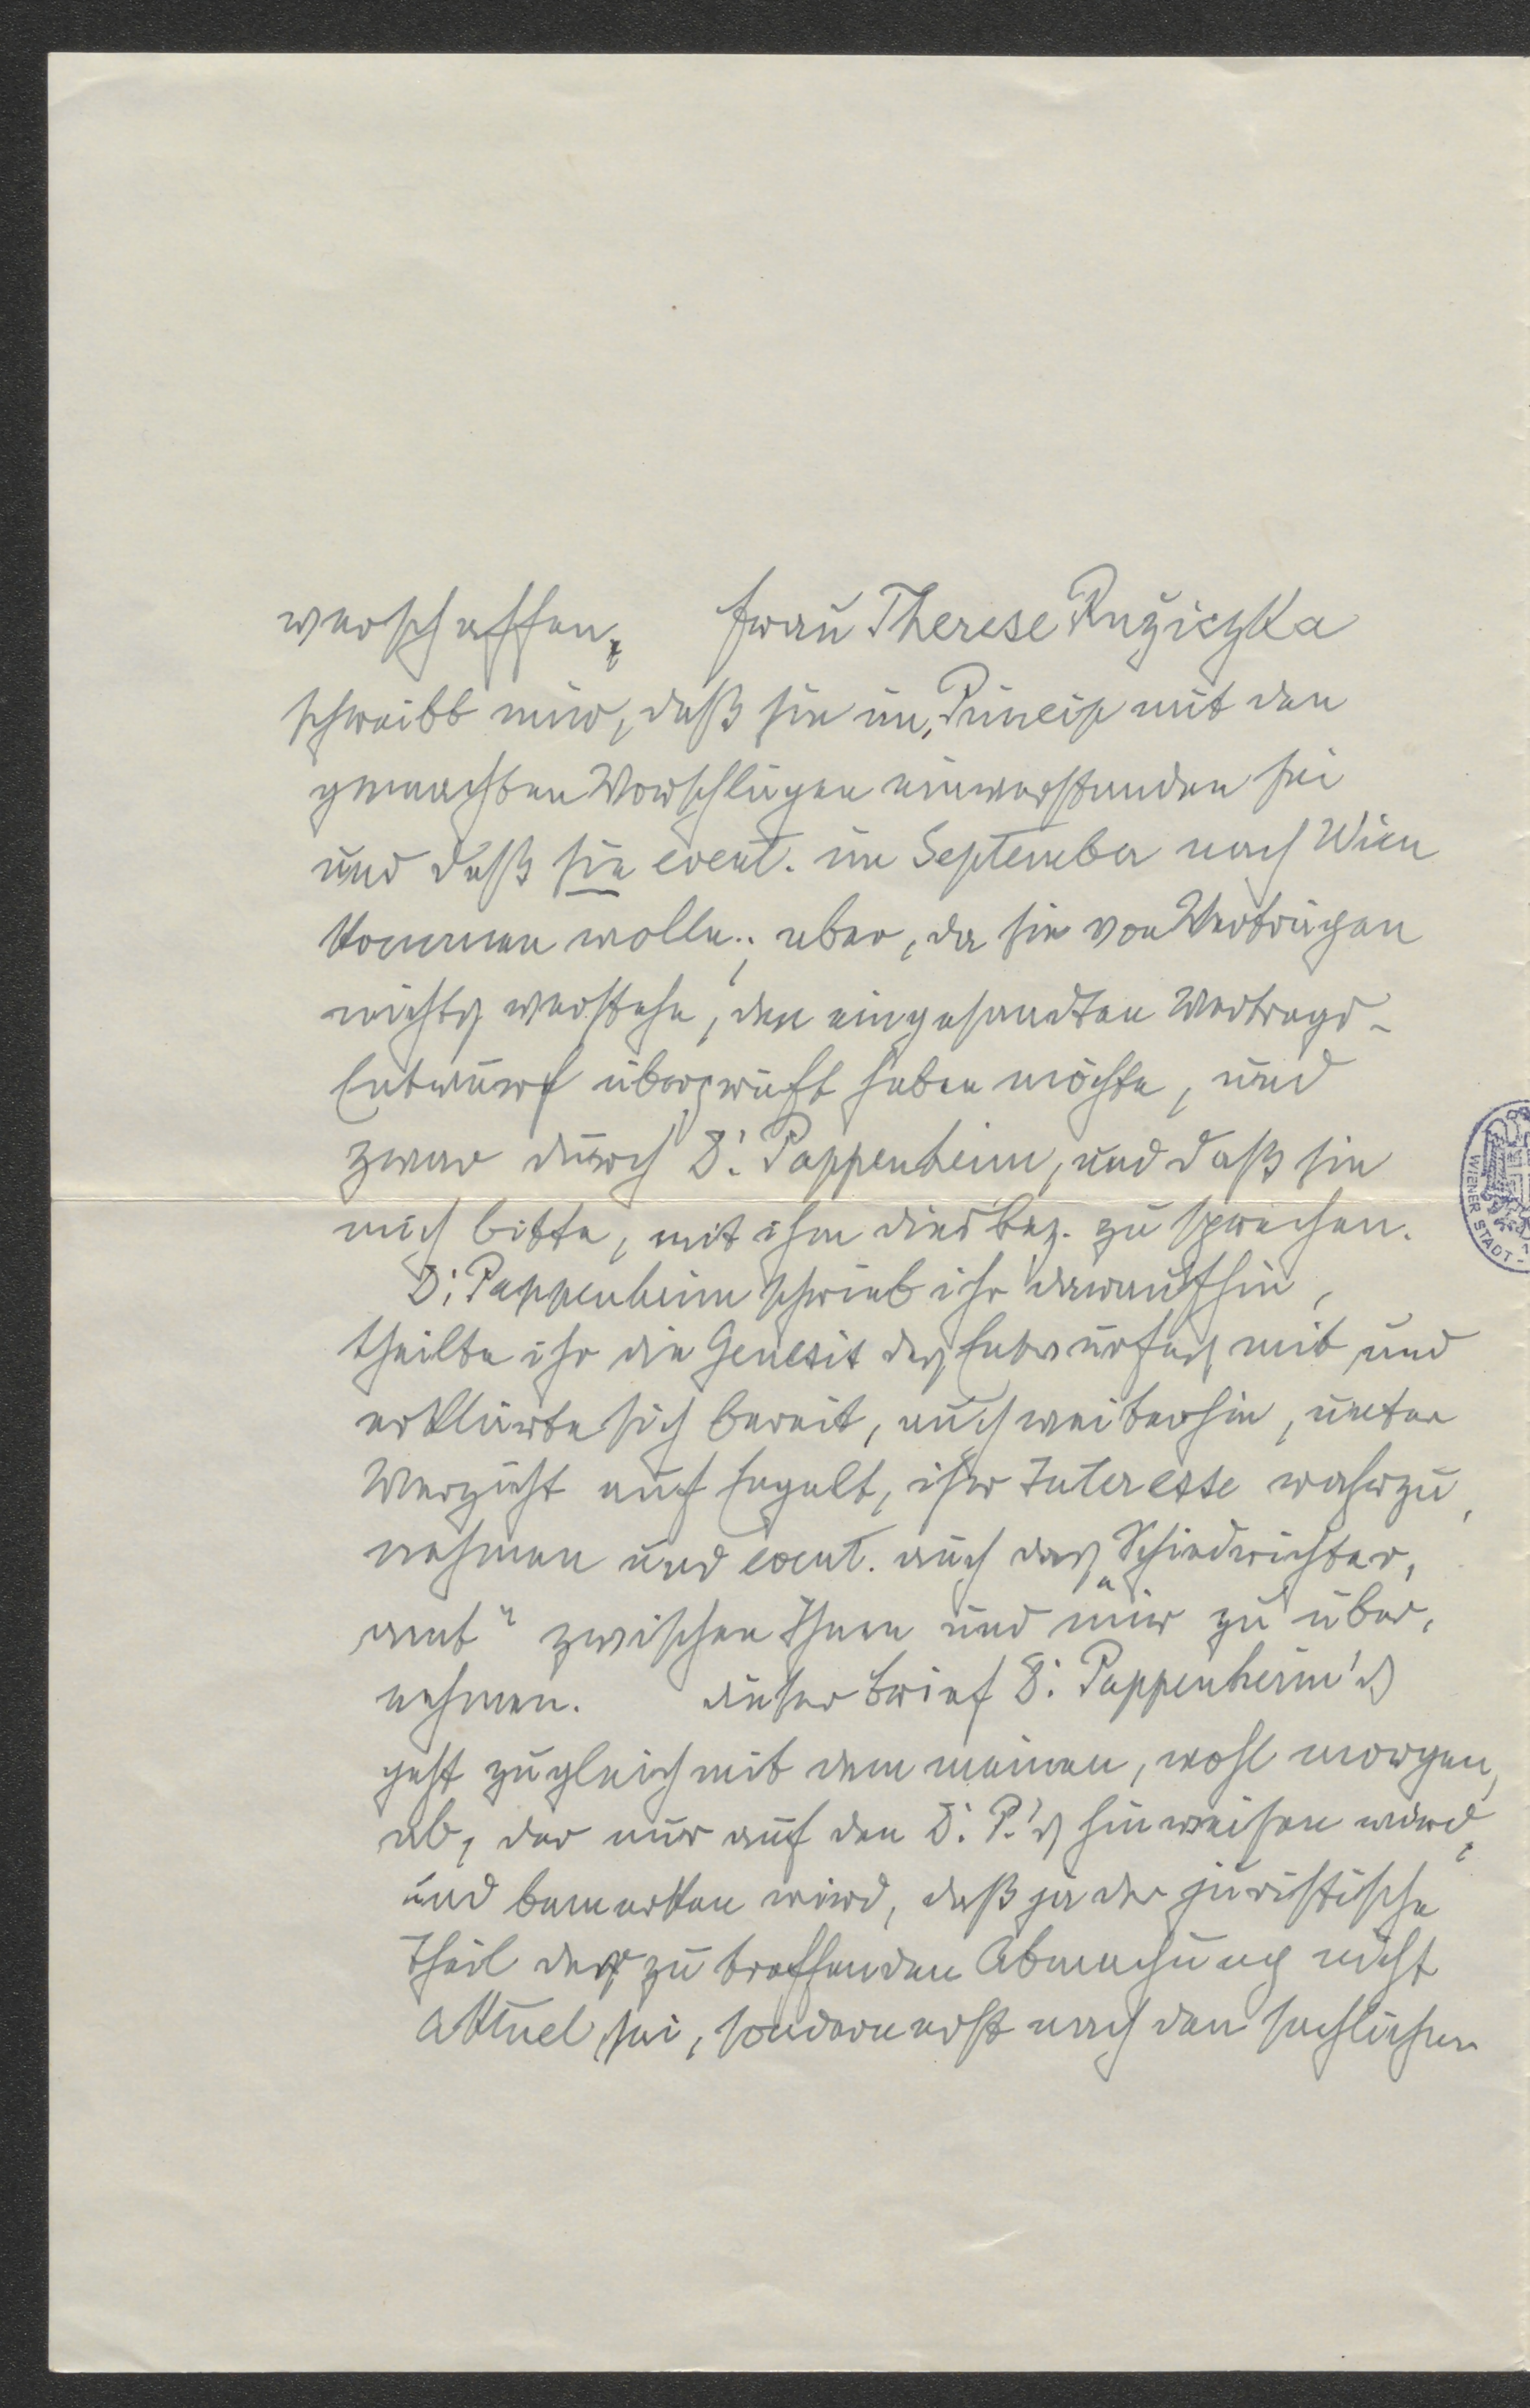 verschaffen. Frau Therese Ružiczka
schreibt mir, daß sie im Princip mit den
gemachten Vorschlägen einverstanden sei
und daß sie event. im September nach Wien
kommen wolle; aber, da sie von Verträgen
nichts verstehe, den eingesandten Vertrags-
Entwurf überprüft haben möchte, und
zwar durch Dr. Pappenheim, und daß sie
mich bitte, mit ihm diesbez. zu sprechen.
Dr. Pappenheim schrieb ihr daraufhin,
theilte ihr die Genesis des Entwurfes mit und
erklärte sich bereit, auch weiterhin, unter
Verzicht auf Engelt, ihr Interesse wahrzu-
nehmen und event. auch das „Schiedsrichter-
amt“ zwischen Ihnen und mir zu über-
nehmen. Dieser Brief Dr. Pappenheim's
geht zugleich mit dem meinen, wohl morgen,
ab, der nur auf den Dr. P.'s hinweisen wird,
und bemerken wird, daß ja der juristische
Theil der zu treffenden Abmachung nicht
aktuel sei, sondern erst nach den sachlichen
WIENER STADT-